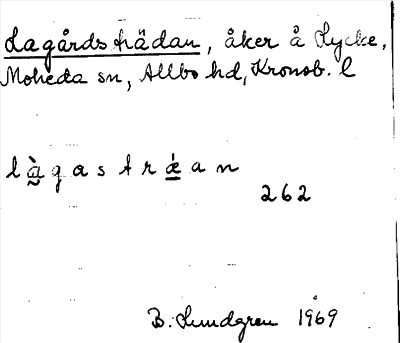 Lagårdsträdan, åker å Lycke,
Moheda sn, Allbo hd, Kronob. l
l à̰ g a s t r ǽ̱ a n
262
B. Lundgren 1969